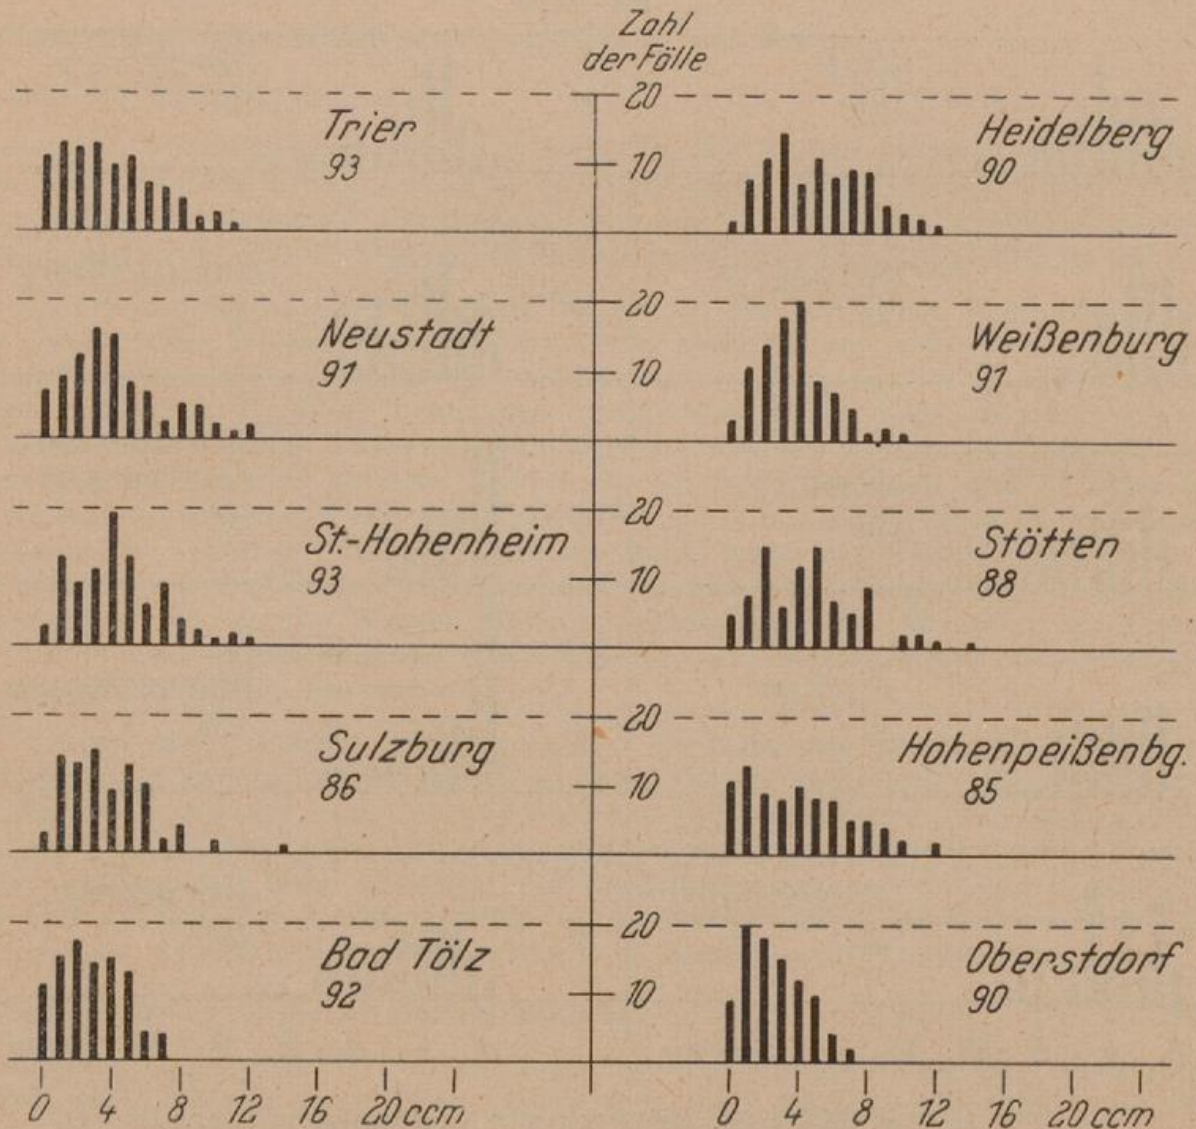 Zahl
der Fälle
20
Trier
93
10
Heidelberg
90
20
Neustadt
91
10
Weißenburg
91
20
St.-Hohenheim
93
10
Stötten
88
20
Sulzburg
86
10
Hohenpeißenbg.
85
20
Bad Tölz
92
10
Oberstdorf
90
0 4 8 12 16 20 ccm
0 4 8 12 16 20 ccm